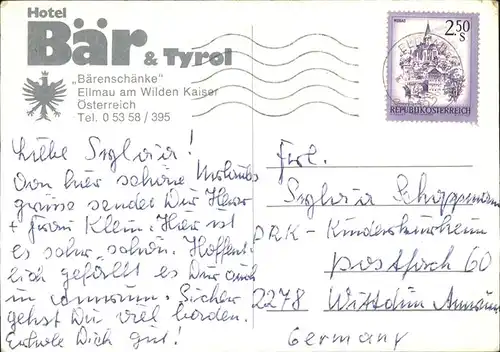 Hotel
Bär & Tyrol
„Bärenschänke"
Ellmau am Wilden Kaiser
Österreich
Tel. 0 53 58 / 395
MURAU
2.50
S
REPUBLIK ÖSTERREICH
Liebe Sylvia!
Von hier schöne Urlaubs
grüsse sendet Dir Herr
+ Frau Klein. Hier ist
es sehr schön. Hoffent
lich gefällt es Dir auch
in Amrum. Sicher
gehst Du viel baden.
Erhole Dich gut!
Frl.
Sylvia
DRK - Kinderkurheim
Postfach 60
2278 Wittdün Amrum
Germany